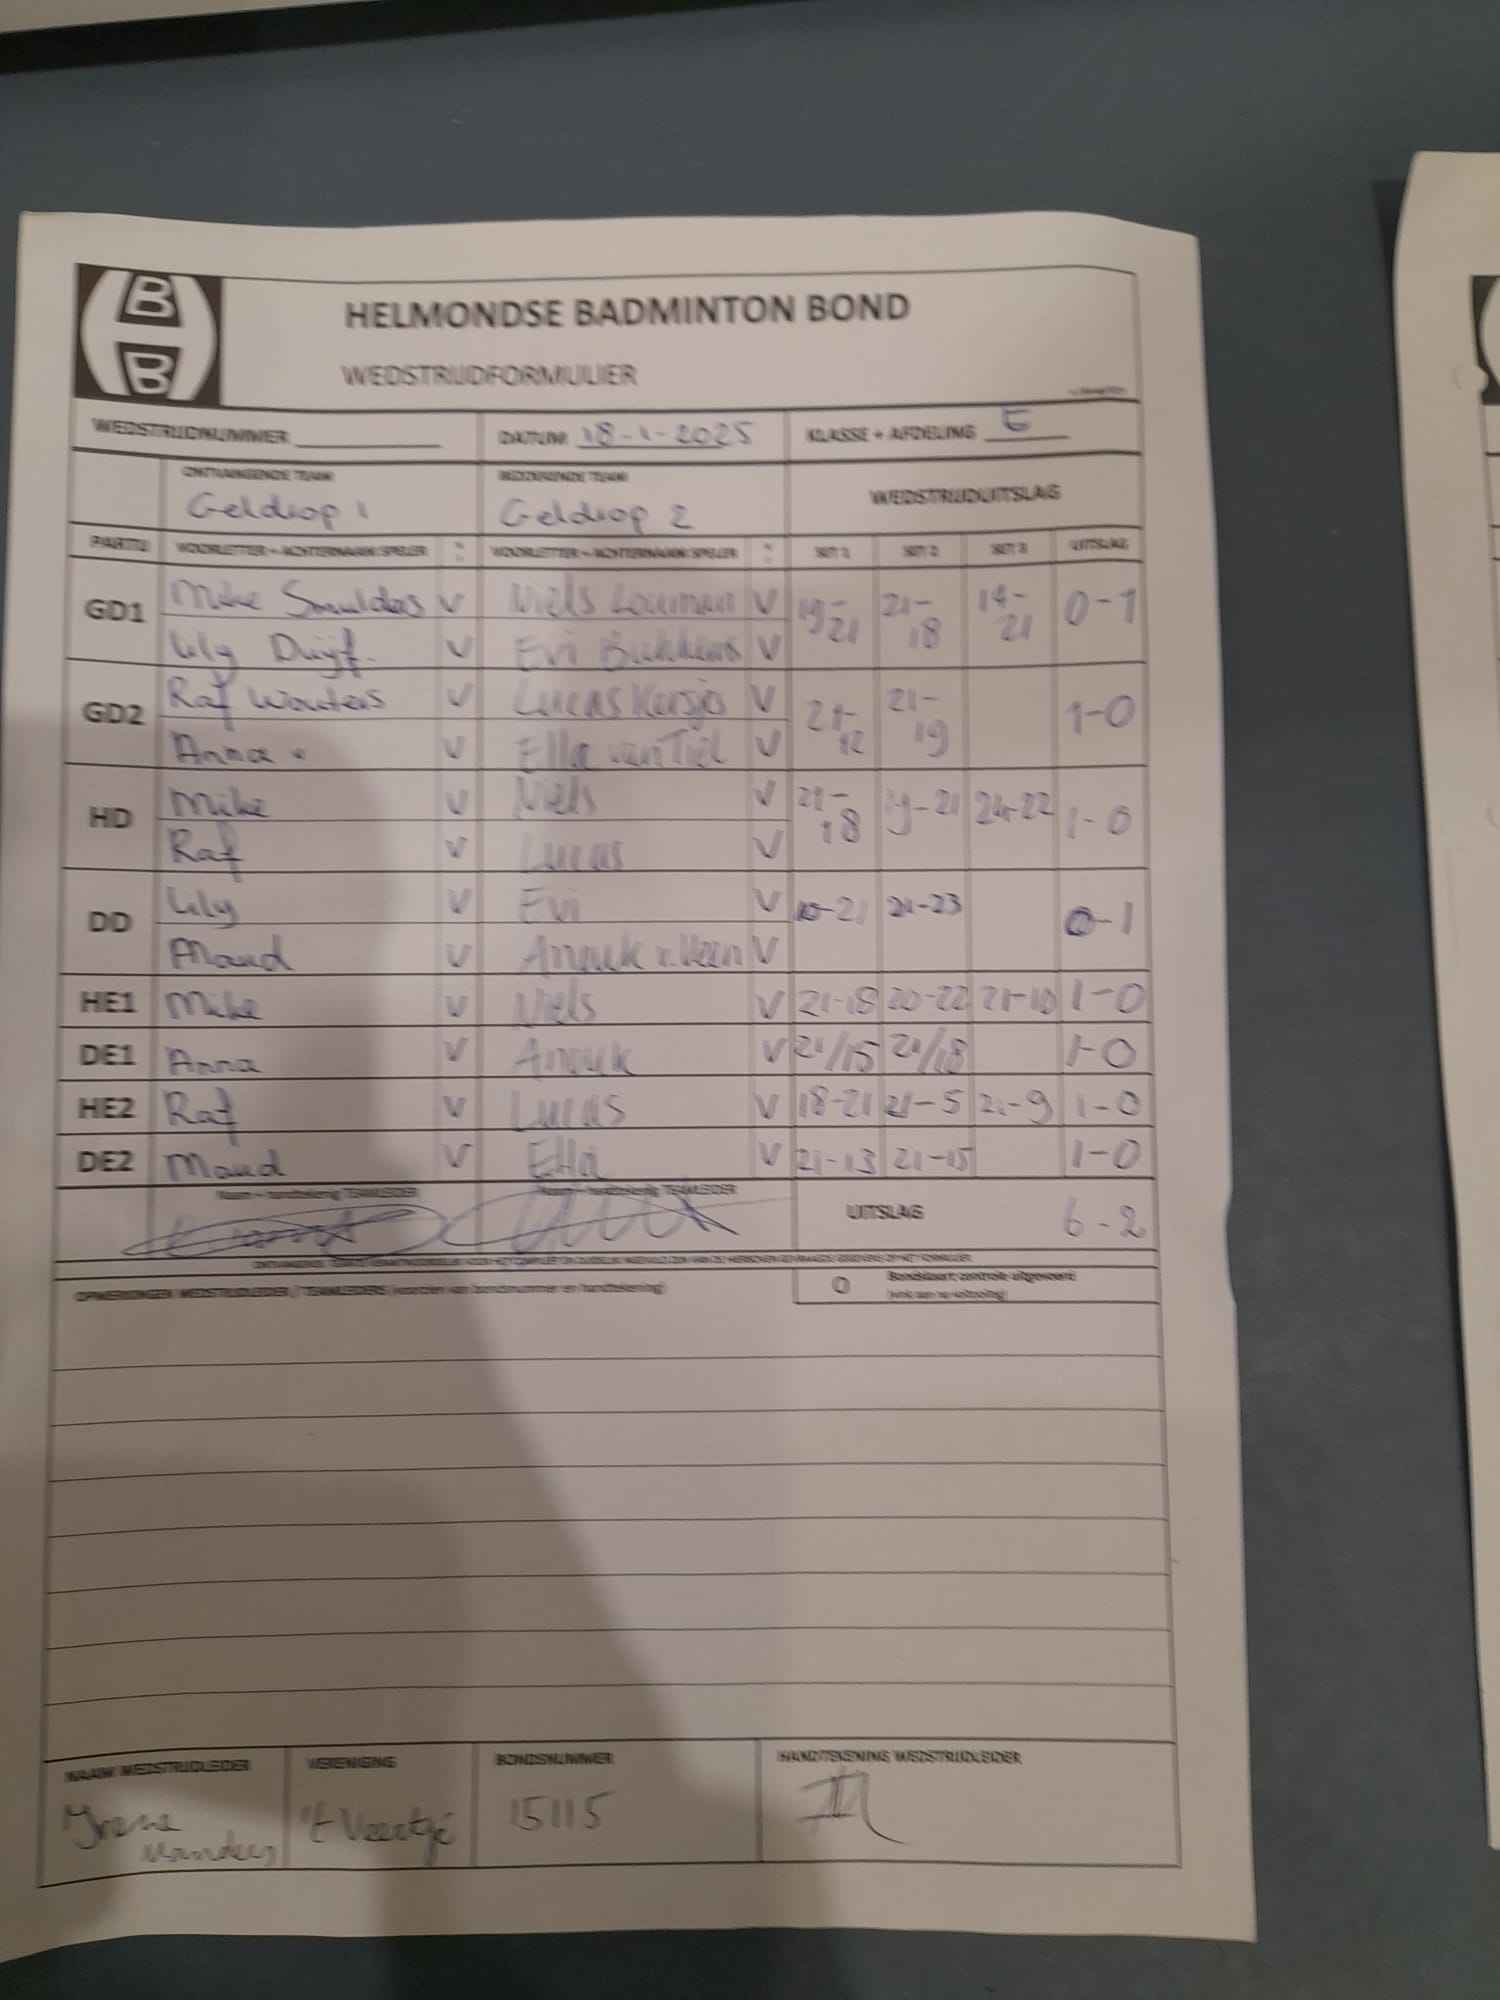 B
B
HELMONDSE BADMINTON BOND
WEDSTRIJDFORMULIER
WEDSTRIJDNUMMER DATUM 18-1-2025 KLASSE + AFDELING E
ONTVANGENDE TEAM BEZOEKENDE TEAM WEDSTRIJDUITSLAG
Geldrop 1 Geldrop 2
PARTIJ VOORLETTER + ACHTERNAAM SPELER VOORLETTER + ACHTERNAAM SPELER SET 1 SET 2 SET 3 UITSLAG
GD1 Mike Smulders V Niels Louman V 19-21 21-18 19-21 0-1
Lily Duijf. V Evi V
GD2 Raf Wouters V Lucas Kersjes V 21-12 21-19 1-0
Anna V Ella van Tiel V
HD Mike V Niels V 21-18 19-21 24-22 1-0
Raf V Lucas V
DD Lily V Evi V 10-21 21-23 0-1
Maud V Anouk v. Veen V
HE1 Mike V Niels V 21-18 20-22 21-10 1-0
DE1 Anna V Anouk V 21/15 21/18 1-0
HE2 Raf V Lucas V 18-21 21-5 21-9 1-0
DE2 Maud V Ella V 21-13 21-15 1-0
Naam + handtekening TEAMLEIDER Naam + handtekening TEAMLEIDER
UITSLAG 6-2
OPMERKINGEN WEDSTRIJDLEIDER / TEAMLEIDERS (voorzien van bondsnummer en handtekening)
O Bondskaart controle uitgevoerd
NAAM WEDSTRIJDLEIDER VERENIGING BONDSNUMMER HANDTEKENING WEDSTRIJDLEIDER
Yrena 't Veertje 15115
Manders